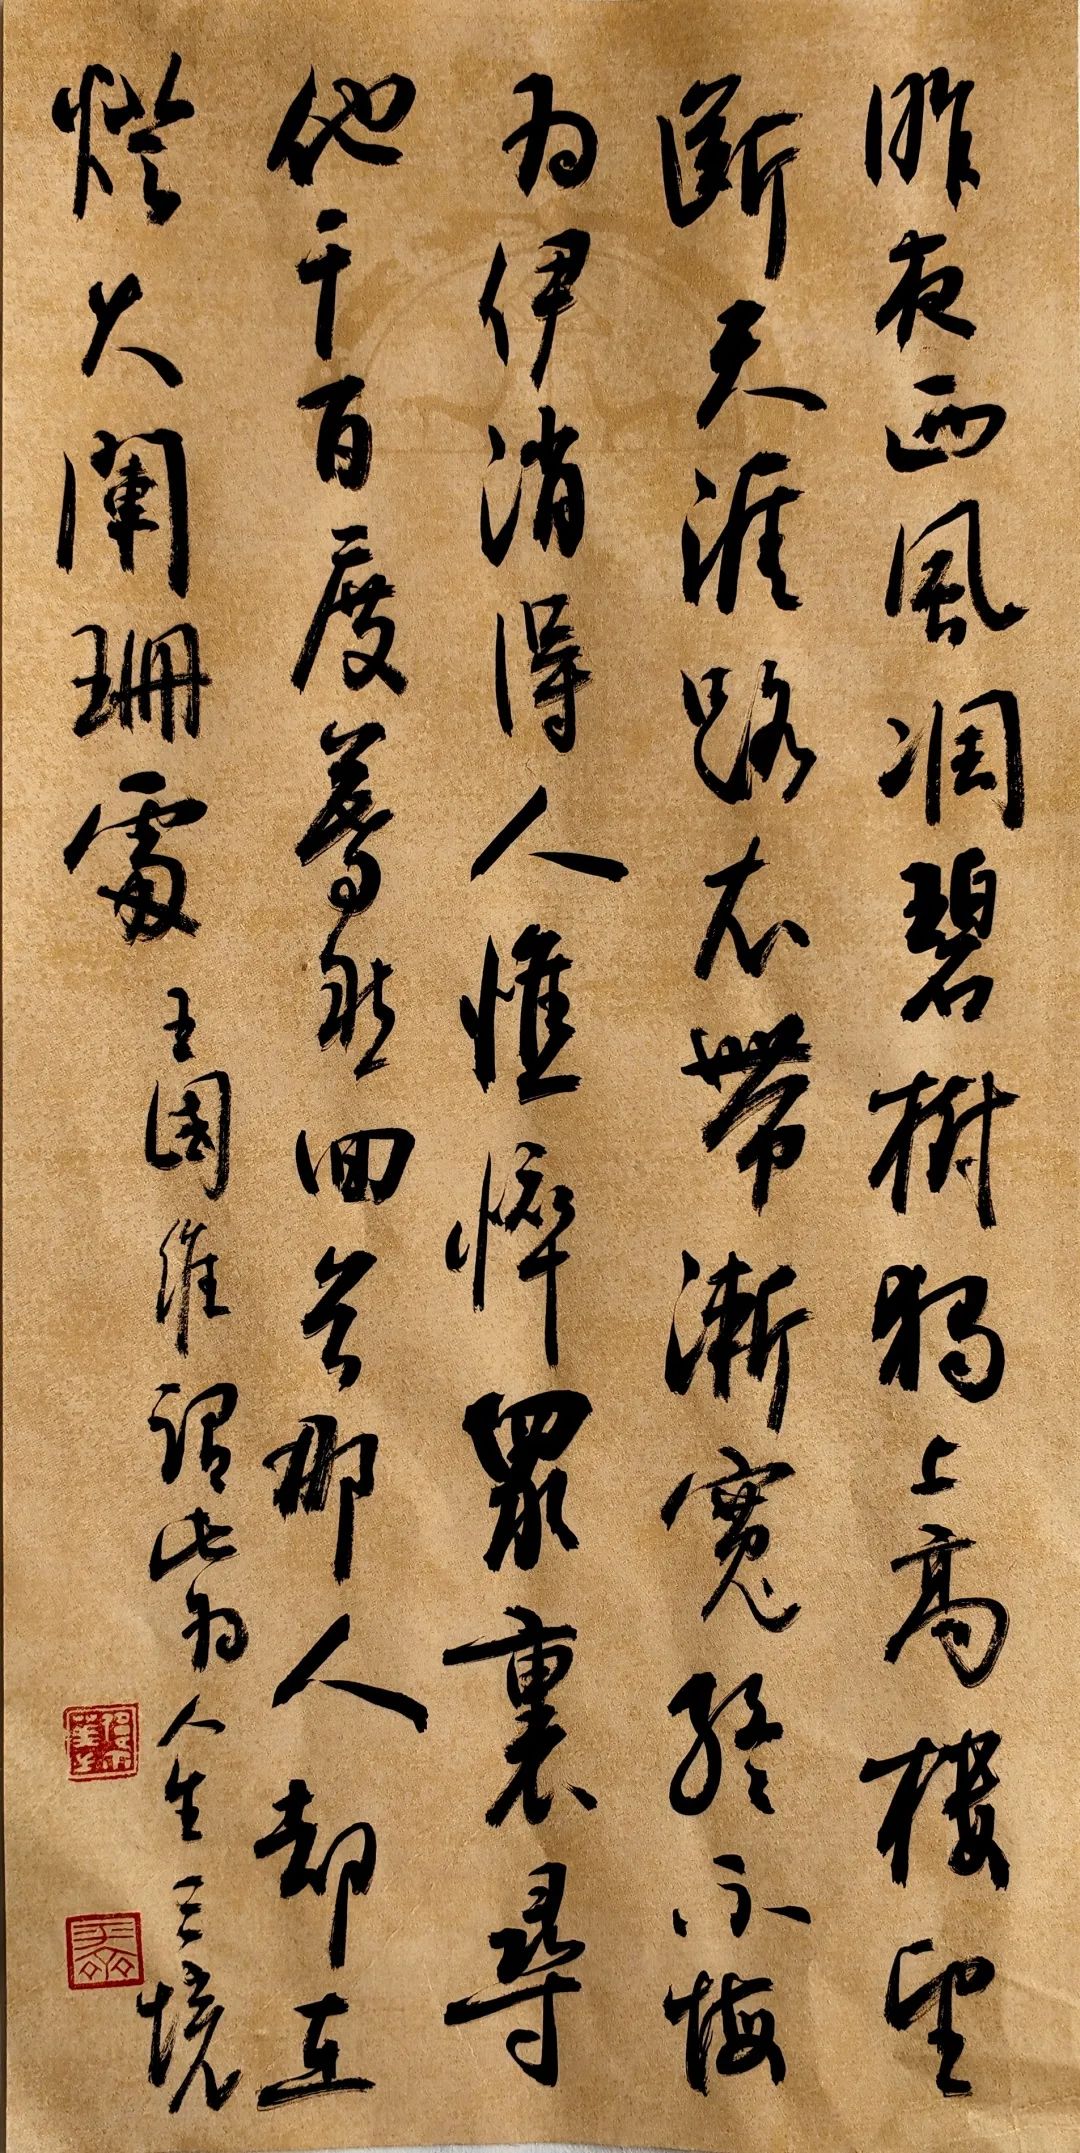 昨夜西風凋碧樹獨上高樓望
斷天涯路衣帶漸寬終不悔
為伊消得人憔悴眾裏尋
他千百度驀然回首那人却在
燈火闌珊處
王国維謂此為人生三境